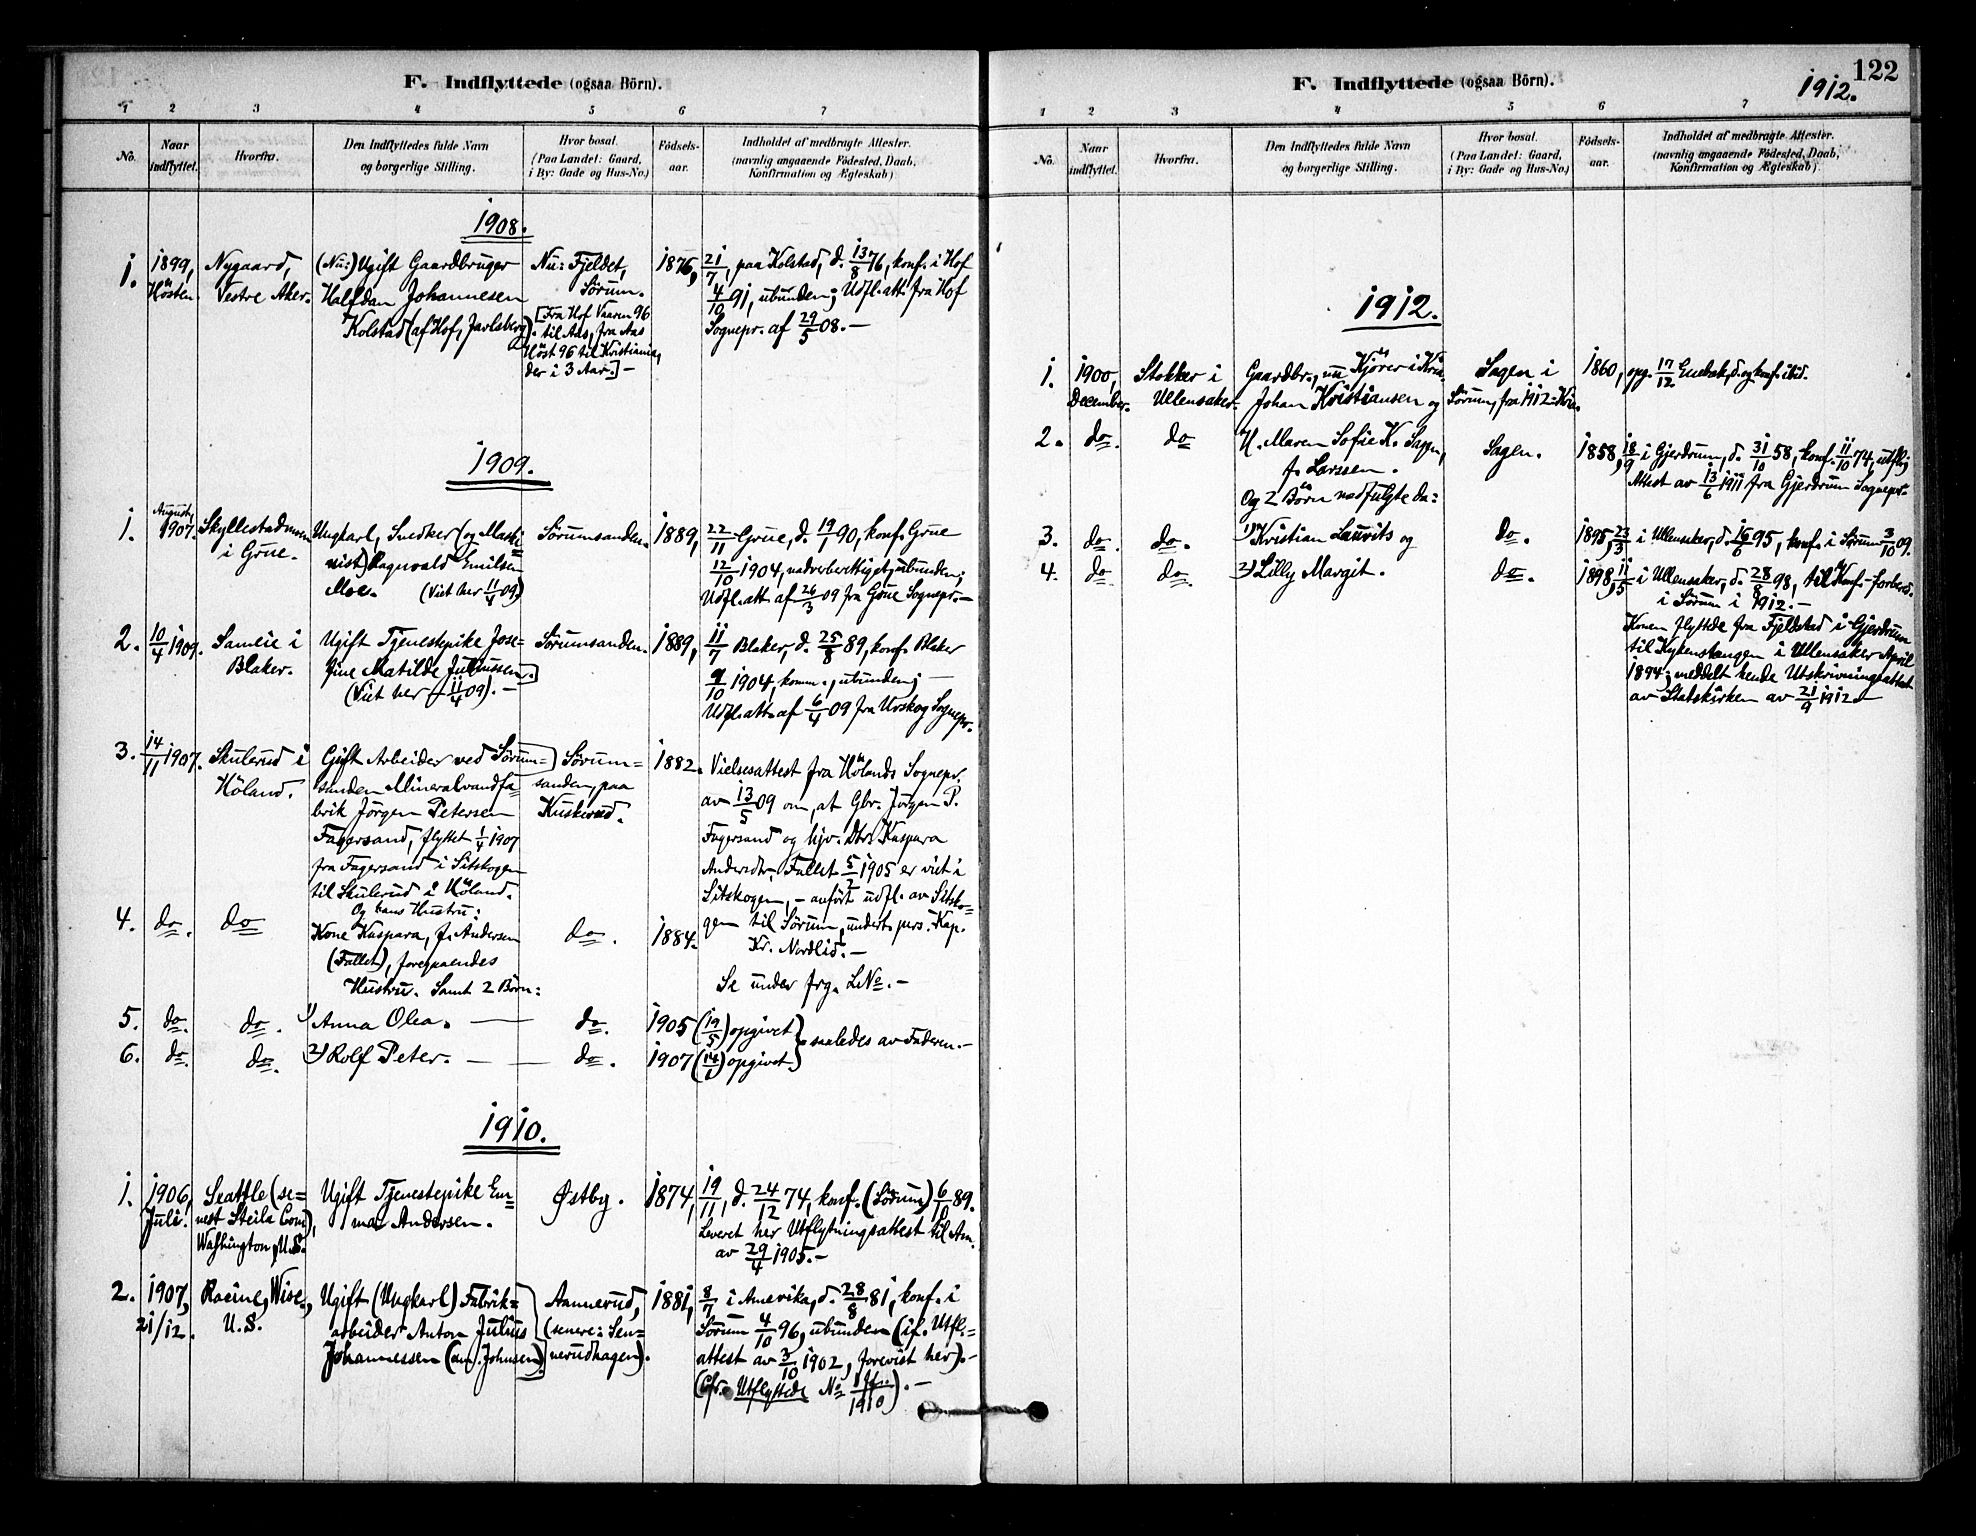 F. Indflyttede (ogsaa Börn).
1 2 3 4 5 6 7
No.
Naar indflyttet.
Hvorfra.
Den Indflyttedes fulde Navn
og borgerlige Stilling.
Hvor bosat.
(Paa Landet: Gaard,
i By: Gade og Hus-No.)
Födsels-
aar.
Indholdet af medbragte Attester.
(navnlig angaaende Födested, Daab,
Konfirmation og Ægteskab)
1908.
1.
1899,
Hösten
Nygaard,
Vestre Aker.
(Nu:) Ugift Gaardbruger
Halfdan Johannesen
Kolstad (af Hof, Jarlsberg)
Nu: Fjeldet,
Sørum.
[Fra Hof Vaaren 96
til Aas, fra Aas
Höst 96 til Kristiania,
der i 3 Aar.] –
1876,
21/7, paa Kolstad, d. 13/8 76, konf. i Hof
4/10 91, ubunden; Udfl.att. fra Hof
Sognepr. af 29/5 08. –
1909.
1.
August,
1907.
Skyllestadmoen
i Grue.
Ungkarl, Snedker (og Maski-
nist) Ragnvald Emilsen
Moe. (Vist her 11/4 09)
Sørumsanden.
1889,
22/11 Grue, d. 19/1 90, konf. Grue
12/10 1904, nadverberettiget, ubunden;
Udfl.att. af 26/3 09 fra Grue Sognepr. –
2.
10/4 1909.
Sameie i
Blaker.
Ugift Tjenestepike Jose-
fine Matilde Juliussen.
(Vist her 11/4 09). –
Sørumsanden.
1889,
11/7 Blaker, d. 25/8 89, konf. Blaker
9/10 1904, komm., ubunden; –
Udfl.att. af 6/4 09 fra Urskog Sognepr.
3.
14/11 1907.
Skulerud i
Höland.
Gift Arbeider ved Sørum-
sanden Mineralvandfa-
brik Jörgen Petersen
Fagersand, flyttet 1/4 1907
fra Fagersand i Sitskogen
til Skulerud i Höland.
Og hans Hustru:
Sørum-
sanden, paa
Kuskerud.
1882.
Vielsesattest fra Hölands Sognepr.
av 13/5 09 om, at Gbr. Jörgen P.
Fagersand og hjv. Dtr. Kaspara
Andersdtr. Fallet 5/2 1905 er viet i
Sitskogen, – anført udfl. av Sitsko-
gen til Sørum, undert. pers. Kap.
Kr. Nordlid. –
4.
do.
do
Kone Kaspara, f. Andersen
(Fallet), foregaaendes
Hustru. Samt 2 Börn:
do.
1884.
Se under frg. LNo. –
5.
do.
do.
1) Anna Olea. –
do.
1905 (19/5) opgivet
saaledes av Faderen. –
6.
do.
do.
2) Rolf Peter. –
do.
1907 (14/1) opgivet
1910.
1.
1906,
Juli.
Seattle (se-
nest Steila Com),
Washington, U.S.
Ugift Tjenestepike Em-
ma Andersen.
Østby.
1874,
19/11, d. 24/12 74, konf. (Sörum) 6/10 89.
Leveret her Utflytningsattest til Am.
av 29/4 1905. –
2.
1907,
21/12.
Racine, Wisc.,
U.S.
Ugift (Ungkarl) Fabrik-
arbeider Anton Julius
Johannessen (am. Johnsen)
Aannerud,
(senere: Sen-
nerudhagen).
1881,
8/7 i Amerika, d. 28/8 81, konf. i
Sørum 4/10 96, ubunden (if. Utfl.-
attest av 3/10 1902, forevist her). –
(Cfr. Utflyttede No 14/1910). –
122
1912.
F. Indflyttede (ogsaa Börn).
1 2 3 4 5 6 7
No.
Naar
indflyttet.
Hvorfra.
Den Indflyttedes fulde Navn
og borgerlige Stilling.
Hvor bosat.
(Paa Landet: Gaard,
i By: Gade og Hus-No.)
Födsels-
aar.
Indholdet af medbragte Attester.
(navnlig angaaende Födested, Daab,
Konfirmation og Ægteskab).
1912.
1.
1900,
December.
Stokker i
Ullensaker.
Gaardbr., nu Kjörer i Kra.
Johan Kristiansen og
Sagen i
Sörum, fra 1912: Kra.
1860,
opg. 17/12 Enebak, d. og konf. ibid.
2.
do.
do
H. Maren Sofie K. Sagen,
f. Larssen.
Og 2 Börn nedfulgte da:
Sagen.
1858,
18/9 i Gjerdrum, d. 31/10 58, konf. 11/10 74, utfl.
Attest av 13/6 1911 fra Gjerdrum Sognepr.
3.
do.
do.
1) Kristian Lauvits og
do.
1895,
23/3 i Ullensaker, d. 16/6 95, konf. i Sørum 3/10 09.
4.
do
do.
2) Lilly Margit.
do.
1898,
11/5 i Ullensaker, d. 28/8 98, til Konf.-forbered.
i Sørum i 1912. –
Konen flyttede fra Fjeldstad i Gjerdrum
til Kykenstangen i Ullensaker April
1894; meddelt hende Utskrivningsattest
av Statskirken av 21/9 1912 –